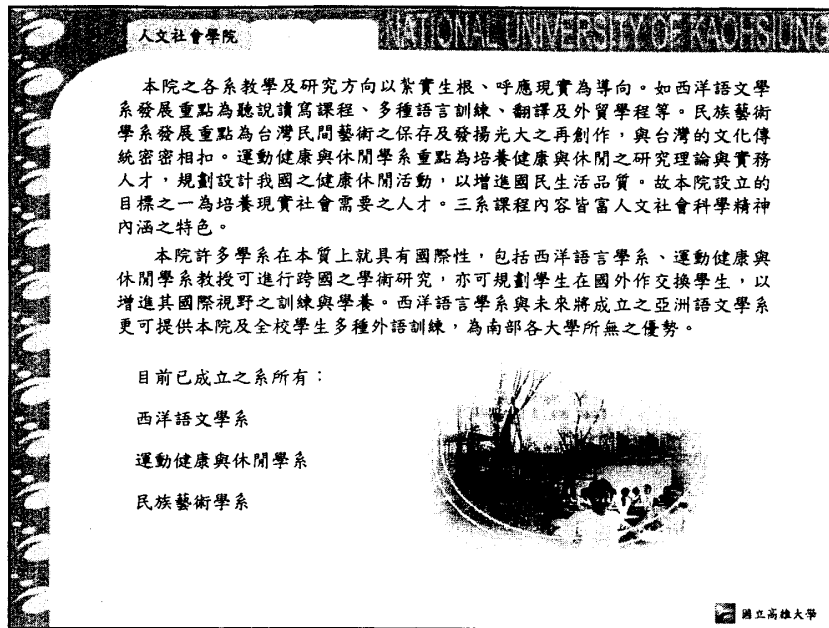 人文社會學院
NATIONAL UNIVERSITY OF KAOHSIUNG
本院之各系教學及研究方向以紮實生根、呼應現實為導向。如西洋語文學
系發展重點為聽說讀寫課程、多種語言訓練、翻譯及外貿學程等。民族藝術
學系發展重點為台灣民間藝術之保存及發揚光大之再創作，與台灣的文化傳
統密密相扣。運動健康與休閒學系重點為培養健康與休閒之研究理論與實務
人才，規劃設計我國之健康休閒活動，以增進國民生活品質。故本院設立的
目標之一為培養現實社會需要之人才。三系課程內容皆富人文社會科學精神
內涵之特色。
本院許多學系在本質上就具有國際性，包括西洋語言學系、運動健康與
休閒學系教授可進行跨國之學術研究，亦可規劃學生在國外作交換學生，以
增進其國際視野之訓練與學養。西洋語言學系與未來將成立之亞洲語文學系
更可提供本院及全校學生多種外語訓練，為南部各大學所無之優勢。
目前已成立之系所有：
西洋語文學系
運動健康與休閒學系
民族藝術學系
國立高雄大學